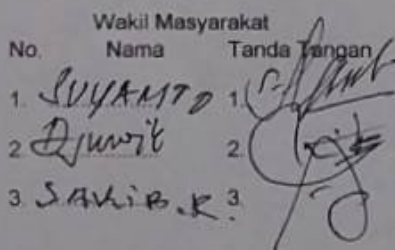 Wakil Masyarakat
No. Nama Tanda Tangan
1. SUYAMTO 1.
2. Djuwit 2.
3. SAKIB.R. 3.